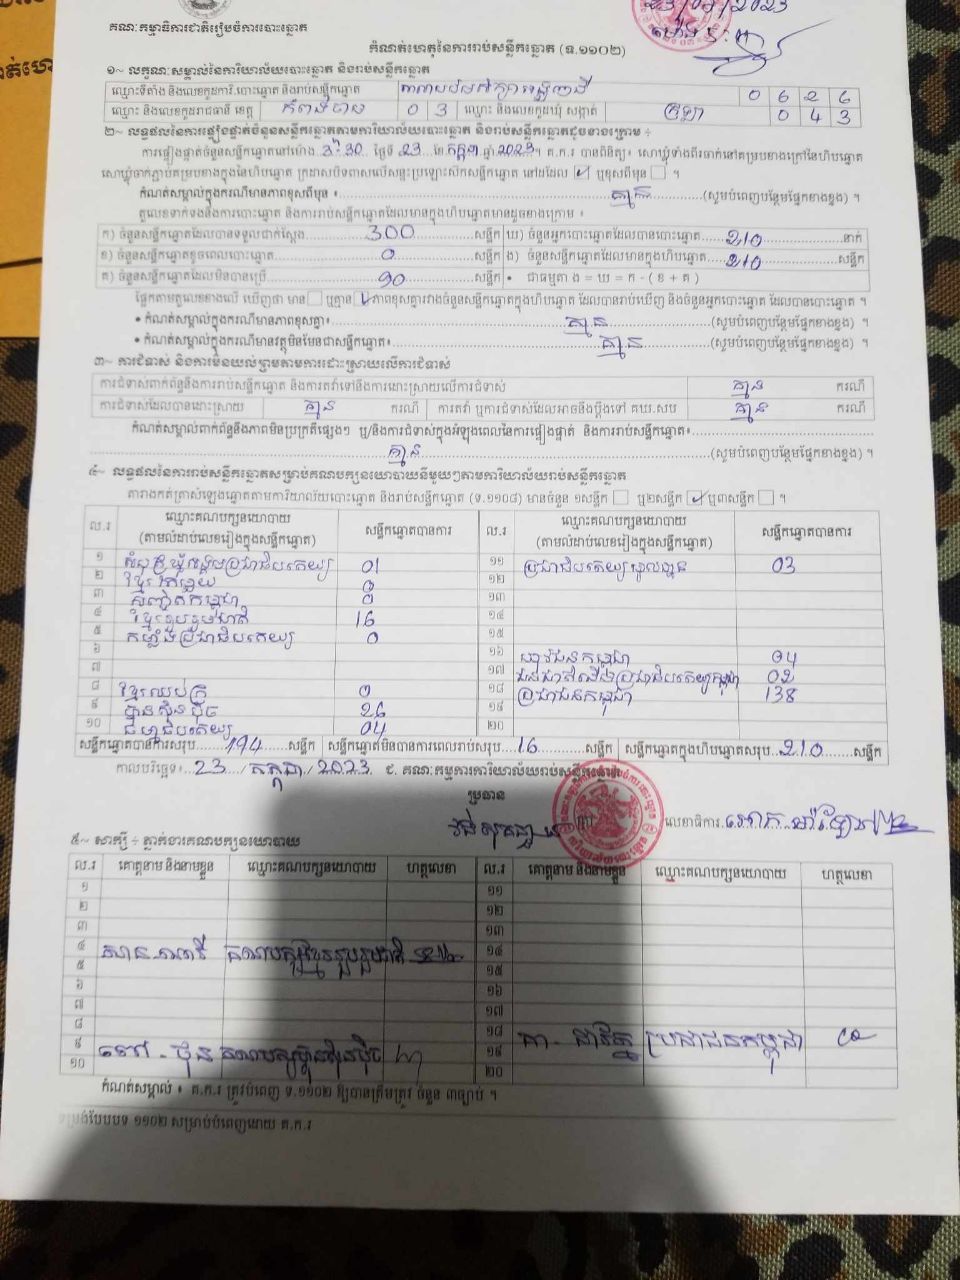 23/07/2023
គណៈកម្មាធិការជាតិរៀបចំការបោះឆ្នោត
កំណត់ហេតុនៃការរាប់សន្លឹកឆ្នោត (ទ.១១០២)
១~ លក្ខណៈសម្គាល់នៃការិយាល័យបោះឆ្នោត និងរាប់សន្លឹកឆ្នោត
ឈ្មោះទីតាំង និងលេខកូដការិ.បោះឆ្នោត និងរាប់សន្លឹកឆ្នោត 0 6 2 6
ឈ្មោះ និងលេខកូដរាជធានី ខេត្ត កំពង់ចាម 0 3 ឈ្មោះ និងលេខកូដឃុំ សង្កាត់ 0 4 3
២~ លទ្ធផលនៃការផ្ទៀងផ្ទាត់ចំនួនសន្លឹកឆ្នោតតាមការិយាល័យបោះឆ្នោត និងរាប់សន្លឹកឆ្នោតដូចខាងក្រោម ÷
ការផ្ទៀងផ្ទាត់ចំនួនសន្លឹកឆ្នោតនៅម៉ោង 3:30 ថ្ងៃទី 23 ខែ កក្កដា ឆ្នាំ 2023។ គ.ក.រ បានពិនិត្យ៖ សោឃ្លុំទាំងពីរចាក់នៅគម្របខាងក្រៅនៃហិបឆ្នោត
សោឃ្លុំចាក់ភ្ជាប់គម្របខាងក្នុងនៃហិបឆ្នោត ក្រដាសបិទពាសលើសន្លះប្រឡោះស៊កសន្លឹកឆ្នោត នៅដដែល ✓ ឬខុសពីមុន ។
កំណត់សម្គាល់ក្នុងករណីមានភាពខុសពីមុន ៖ គ្មាន (សូមបំពេញបន្ថែមផ្នែកខាងខ្នង) ។
តួលេខទាក់ទងនឹងការបោះឆ្នោត និងការរាប់សន្លឹកឆ្នោតដែលមានក្នុងហិបឆ្នោតមានដូចខាងក្រោម ៖
ក) ចំនួនសន្លឹកឆ្នោតដែលបានទទួលជាក់ស្តែង 300 សន្លឹក ឃ) ចំនួនអ្នកបោះឆ្នោតដែលបានបោះឆ្នោត 210 នាក់
ខ) ចំនួនសន្លឹកឆ្នោតខូចពេលបោះឆ្នោត 0 សន្លឹក ង) ចំនួនសន្លឹកឆ្នោតដែលមានក្នុងហិបឆ្នោត 210 សន្លឹក
គ) ចំនួនសន្លឹកឆ្នោតដែលមិនបានប្រើ 90 សន្លឹក • ជាធម្មតា ង = ឃ = ក - ( ខ + គ )
ផ្អែកតាមតួលេខខាងលើ ឃើញថា មាន ឬគ្មាន ✓ ភាពខុសគ្នារវាងចំនួនសន្លឹកឆ្នោតក្នុងហិបឆ្នោត ដែលបានរាប់ឃើញ និងចំនួនអ្នកបោះឆ្នោត ដែលបានបោះឆ្នោត ។
• កំណត់សម្គាល់ក្នុងករណីមានភាពខុសគ្នា៖ គ្មាន (សូមបំពេញបន្ថែមផ្នែកខាងខ្នង) ។
• កំណត់សម្គាល់ក្នុងករណីមានវត្ថុមិនមែនជាសន្លឹកឆ្នោត៖ គ្មាន (សូមបំពេញបន្ថែមផ្នែកខាងខ្នង) ។
៣~ ការជំទាស់ និងការមិនយល់ព្រមតាមការដោះស្រាយលើការជំទាស់
ការជំទាស់ពាក់ព័ន្ធនឹងការរាប់សន្លឹកឆ្នោត និងការតវ៉ាទៅនឹងការដោះស្រាយលើការជំទាស់ គ្មាន ករណី
ការជំទាស់ដែលបានដោះស្រាយ គ្មាន ករណី ការតវ៉ា ឬការជំទាស់ដែលអាចនឹងប្តឹងទៅ គឃ.សប គ្មាន ករណី
កំណត់សម្គាល់ពាក់ព័ន្ធនឹងភាពមិនប្រក្រតីផ្សេងៗ ឬ/និងការជំទាស់ក្នុងអំឡុងពេលនៃការផ្ទៀងផ្ទាត់ និងការរាប់សន្លឹកឆ្នោត៖
គ្មាន (សូមបំពេញបន្ថែមផ្នែកខាងខ្នង) ។
៤~ លទ្ធផលនៃការរាប់សន្លឹកឆ្នោតសម្រាប់គណបក្សនយោបាយនីមួយៗតាមការិយាល័យរាប់សន្លឹកឆ្នោត
តារាងកត់ត្រាសំឡេងឆ្នោតតាមការិយាល័យបោះឆ្នោត និងរាប់សន្លឹកឆ្នោត (ទ.១១០៨) មានចំនួន ១សន្លឹក ឬ២សន្លឹក ✓ ឬ៣សន្លឹក ។
ល.រ ឈ្មោះគណបក្សនយោបាយ (តាមលំដាប់លេខរៀងក្នុងសន្លឹកឆ្នោត) សន្លឹកឆ្នោតបានការ ល.រ ឈ្មោះគណបក្សនយោបាយ (តាមលំដាប់លេខរៀងក្នុងសន្លឹកឆ្នោត) សន្លឹកឆ្នោតបានការ
១ សំបុកឃ្មុំសង្គមប្រជាធិបតេយ្យ 01 ១១ ប្រជាធិបតេយ្យមូលដ្ឋាន 03
២ ខ្មែរអភិរក្ស 0 ១២
៣ សញ្ជាតិកម្ពុជា 0 ១៣
៤ ខ្មែររួបរួមជាតិ 16 ១៤
៥ កម្លាំងប្រជាធិបតេយ្យ 0 ១៥
៦ ១៦ យុវជនកម្ពុជា 04
៧ ១៧ ជនជាតិដើមប្រជាធិបតេយ្យកម្ពុជា 02
៨ ខ្មែរឈប់ក្រ 0 ១៨ ប្រជាជនកម្ពុជា 138
៩ ហ្វ៊ុនស៊ិនប៉ិច 26 ១៩
១០ ធម្មាធិបតេយ្យ 04 ២០
សន្លឹកឆ្នោតបានការសរុប 194 សន្លឹក សន្លឹកឆ្នោតមិនបានការពេលរាប់សរុប 16 សន្លឹក សន្លឹកឆ្នោតក្នុងហិបឆ្នោតសរុប 210 សន្លឹក
កាលបរិច្ឆេទ៖ 23 / កក្កដា / 2023 ជ. គណៈកម្មការការិយាល័យរាប់សន្លឹកឆ្នោត
ប្រធាន
លេខាធិការ
៥~ សាក្សី ÷ ភ្នាក់ងារគណបក្សនយោបាយ
ល.រ គោត្តនាម និងនាមខ្លួន ឈ្មោះគណបក្សនយោបាយ ហត្ថលេខា ល.រ គោត្តនាម និងនាមខ្លួន ឈ្មោះគណបក្សនយោបាយ ហត្ថលេខា
១ ១១
២ ១២
៣ ១៣
៤ គណបក្សខ្មែររួបរួមជាតិ ១៤
៥ ១៥
៦ ១៦
៧ ១៧
៨ ១៨ ប្រជាជនកម្ពុជា
៩ គណបក្សហ្វ៊ុនស៊ិនប៉ិច ១៩
១០ ២០
កំណត់សម្គាល់ ៖ គ.ក.រ ត្រូវបំពេញ ទ.១១០២ ឱ្យបានត្រឹមត្រូវ ចំនួន ៣ច្បាប់ ។
ទម្រង់បែបបទ ១១០២ សម្រាប់បំពេញដោយ គ.ក.រ